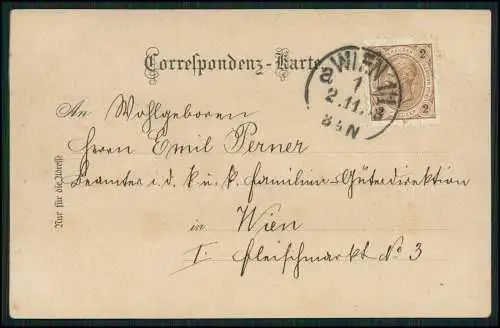 Correspondenz-Karte
WIEN 1/1
a
1
2.11.
8½N
2
2
An Wohlgeboren
Herrn Emil Perner
Beamter i. d. k. u. k. Familien-Güterdirektion
in Wien
I. Fleischmarkt No 3
Nur für die Adresse